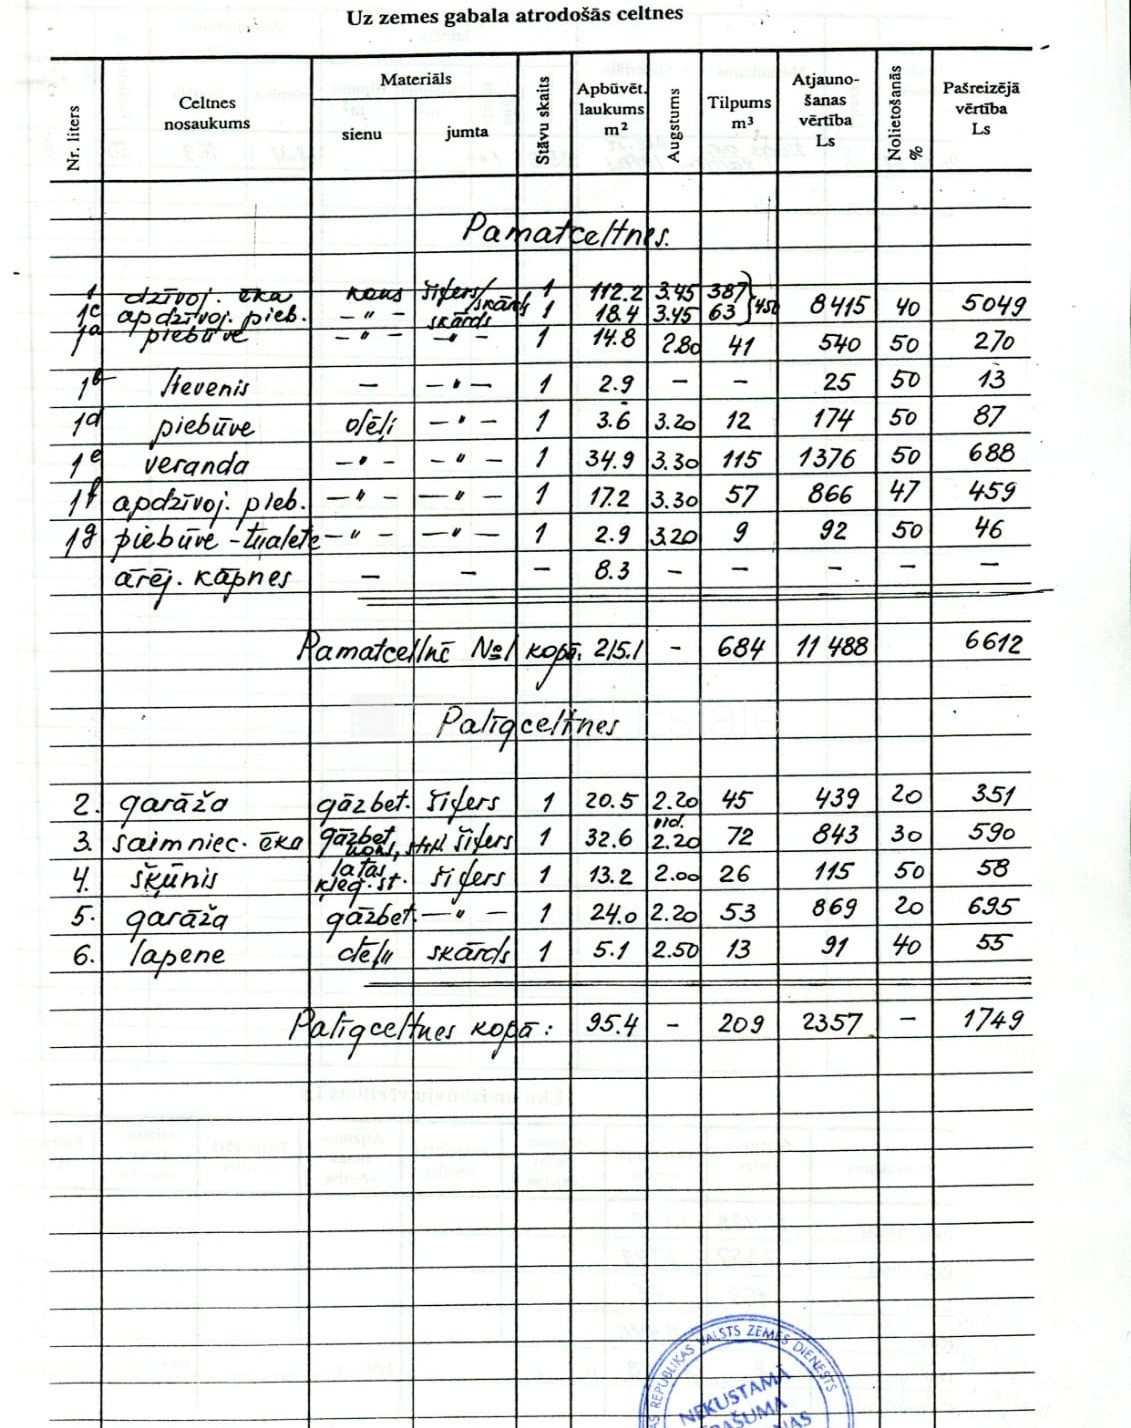 Uz zemes gabala atrodošās celtnes
Nr. liters | Celtnes nosaukums | Materiāls sienu | Materiāls jumta | Stāvu skaits | Apbūvēt. laukums m² | Augstums | Tilpums m³ | Atjauno-šanas vērtība Ls | Nolietošanās % | Pašreizējā vērtība Ls
Pamatceltnes.
1 dzīvoj. ēka koks šifers/skārds 1 112.2 3.45 387
1c apdzīvoj. pieb. -"- skārds 1 18.4 3.45 63 450 8415 40 5049
1a piebūve -"- -"- 1 14.8 2.80 41 540 50 270
1b lievenis - -"- 1 2.9 - - 25 50 13
1d piebūve dēļi -"- 1 3.6 3.20 12 174 50 87
1e veranda -"- -"- 1 34.9 3.30 115 1376 50 688
1f apdzīvoj. pieb. -"- -"- 1 17.2 3.30 57 866 47 459
1g piebūve-tualete -"- -"- 1 2.9 3.20 9 92 50 46
ārēj. kāpnes - - - 8.3 - - - - -
Pamatceltnē №1 kopā: 215.1 - 684 11 488 6612
Palīgceltnes
2. garāža gāzbet. šifers 1 20.5 2.20 45 439 20 351
3. saimniec. ēka gāzbet. koks, šifers 1 32.6 vid. 2.20 72 843 30 590
4. šķūnis latas ķieg. st. šifers 1 13.2 2.00 26 115 50 58
5. garāža gāzbet. -"- 1 24.0 2.20 53 869 20 695
6. lapene dēļu skārds 1 5.1 2.50 13 91 40 55
Palīgceltnes kopā: 95.4 - 209 2357 - 1749
REPUBLIKAS VALSTS ZEMES DIENESTS
NEKUSTAMĀ